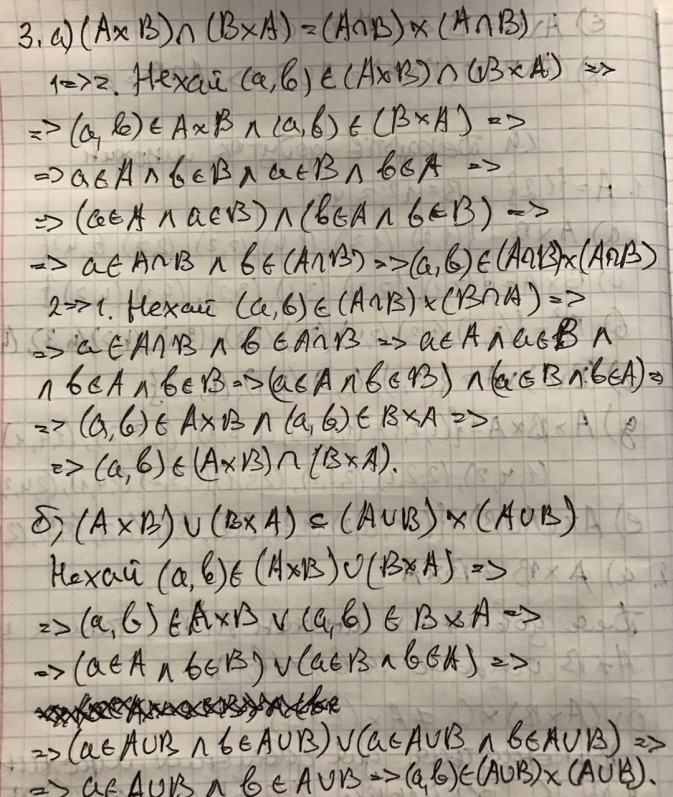 3. а) (A×B)∩(B×A)=(A∩B)×(A∩B)
1=>2. Нехай (a,b)∈(A×B)∩(B×A) =>
=>(a,b)∈A×B ∧ (a,b)∈(B×A) =>
=> a∈A ∧ b∈B ∧ a∈B ∧ b∈A =>
=> (a∈A ∧ a∈B)∧(b∈A ∧ b∈B) =>
=> a∈A∩B ∧ b∈(A∩B) =>(a,b)∈(A∩B)×(A∩B)
2=>1. Нехай (a,b)∈(A∩B)×(B∩A)=>
=> a∈A∩B ∧ b∈A∩B => a∈A∧a∈B ∧
∧ b∈A ∧ b∈B =>(a∈A ∧ b∈B) ∧(a∈B∧b∈A)=>
=> (a,b)∈A×B ∧ (a,b)∈B×A =>
=> (a,b)∈(A×B)∩(B×A).
б) (A×B)∪(B×A)⊆(A∪B)×(A∪B)
Нехай (a,b)∈(A×B)∪(B×A) =>
=> (a,b)∈A×B ∨ (a,b)∈B×A =>
=> (a∈A ∧ b∈B)∨(a∈B∧b∈A) =>
=> (a∈A∪B ∧ b∈A∪B)∨(a∈A∪B ∧ b∈A∪B) =>
=> a∈A∪B ∧ b∈A∪B =>(a,b)∈(A∪B)×(A∪B).